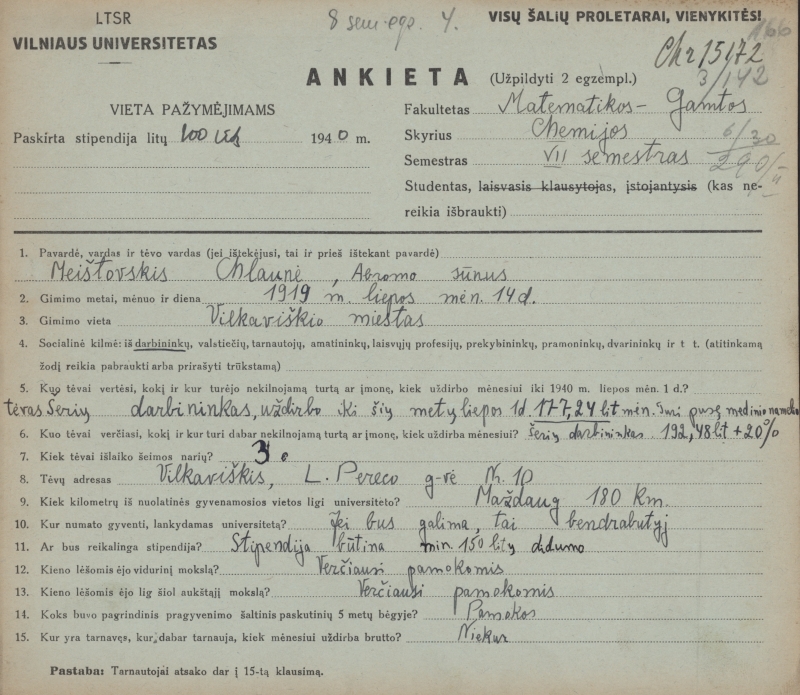 LTSR
VILNIAUS UNIVERSITETAS
8 sem. egz. 4.
VISŲ ŠALIŲ PROLETARAI, VIENYKITĖS!
166
Chr 15472
3/142
ANKIETA (Užpildyti 2 egzempl.)
VIETA PAŽYMĖJIMAMS
Paskirta stipendija litų 100 194 0 m.
Fakultetas Matematikos - Gamtos
Skyrius Chemijos
6/30
Semestras VII semestras
290/-
Studentas, laisvasis klausytojas, įstojantysis (kas ne-
reikia išbraukti)
1. Pavardė, vardas ir tėvo vardas (jei ištekėjusi, tai ir prieš ištekant pavardė)
Meištovskis Chlaunė, Abromo sūnus
2. Gimimo metai, mėnuo ir diena 1919 m. liepos mėn. 14 d.
3. Gimimo vieta Vilkaviškio miestas
4. Socialinė kilmė: iš darbininkų, valstiečių, tarnautojų, amatininkų, laisvųjų profesijų, prekybininkų, pramoninkų, dvarininkų ir t t. (atitinkamą
žodį reikia pabraukti arba prirašyti trūkstamą)
5. Kuo tėvai vertėsi, kokį ir kur turėjo nekilnojamą turtą ar įmonę, kiek uždirbo mėnesiui iki 1940 m. liepos mėn. 1 d.?
tėvas Šerių darbininkas, uždirbo iki šių metų liepos 1d. 177,24 lit mėn. Turi pusę medinio namelio
6. Kuo tėvai verčiasi, kokį ir kur turi dabar nekilnojamą turtą ar įmonę, kiek uždirba mėnesiui? Šerių darbininkas 192,48 lit + 20%
7. Kiek tėvai išlaiko šeimos narių? 3
8. Tėvų adresas Vilkaviškis, L. Pereco g-vė Nr. 10
9. Kiek kilometrų iš nuolatinės gyvenamosios vietos ligi universiteto? Maždaug 180 km.
10. Kur numato gyventi, lankydamas universitetą? Jei bus galima, tai bendrabutyj
11. Ar bus reikalinga stipendija? Stipendija būtina min. 150 litų didumo
12. Kieno lėšomis ėjo vidurinį mokslą? Verčiausi pamokomis
13. Kieno lėšomis ėjo lig šiol aukštąjį mokslą? Verčiausi pamokomis
14. Koks buvo pagrindinis pragyvenimo šaltinis paskutinių 5 metų bėgyje? Pamokos
15. Kur yra tarnavęs, kur dabar tarnauja, kiek mėnesiui uždirba brutto? Niekur
Pastaba: Tarnautojai atsako dar į 15-tą klausimą.